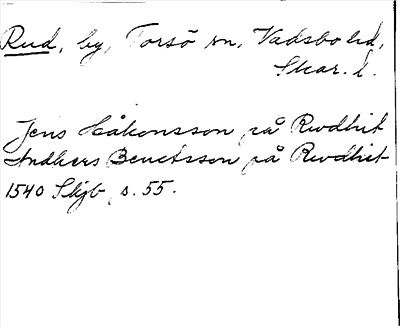 Rud, by, Torsö sn, Vadsbo hd,
Skar. l.
Jens Håkonsson på Rwdhit
Andhers Benctsson på Rwdhit
1540 Skjb s. 55.